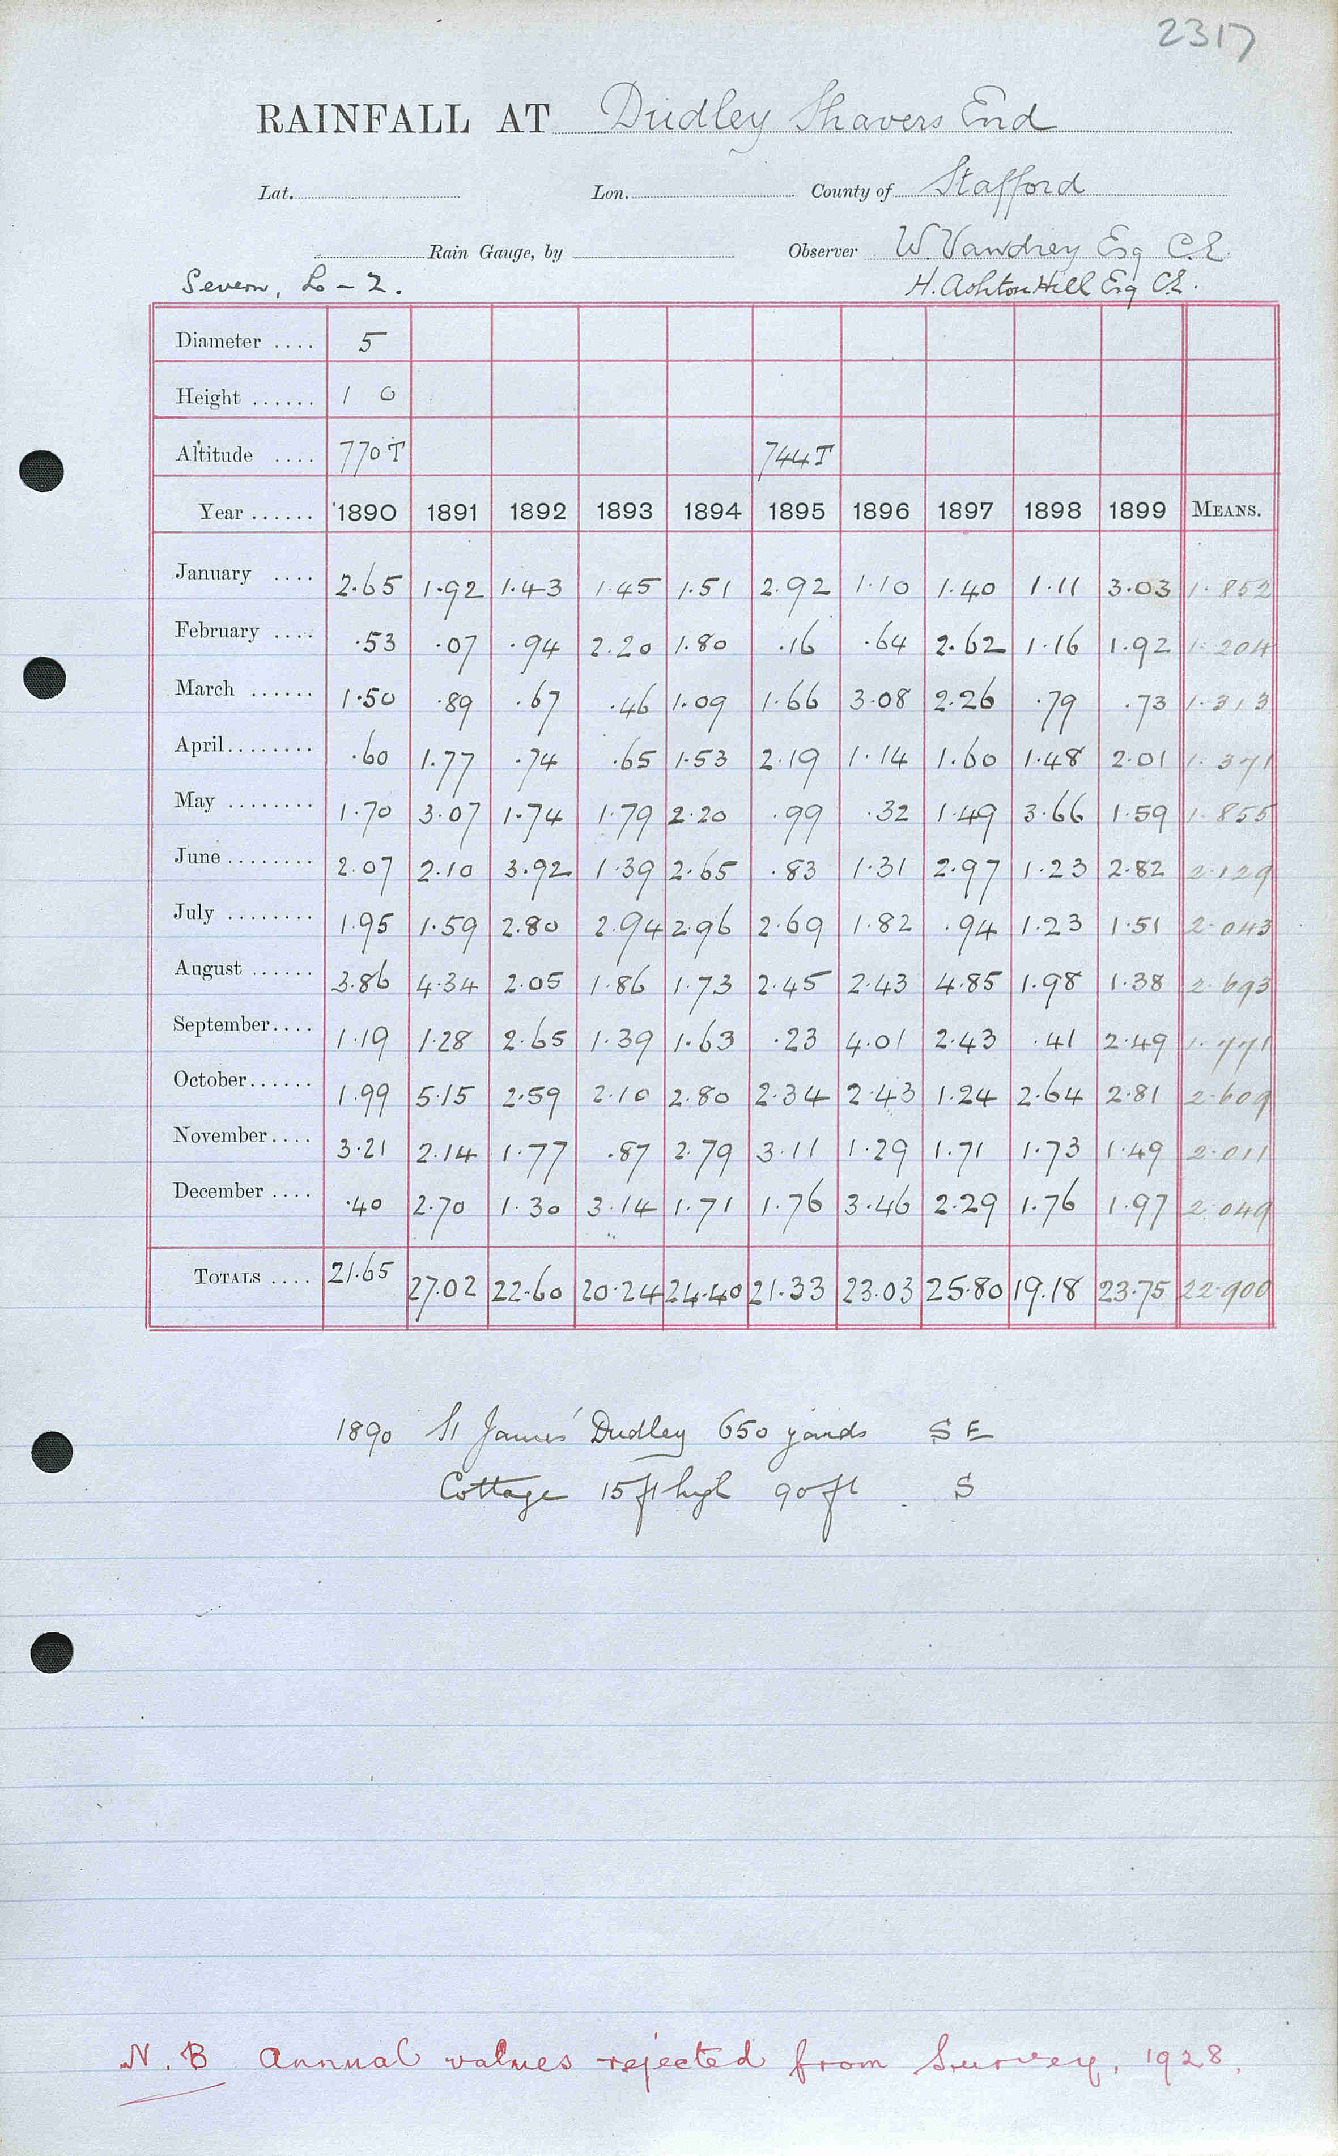 2317
RAINFALL AT Dudley Shavers End
Lat. Lon. County of Stafford
Rain Gauge, by Observer W. Vawdrey Esq C.E.
Severn, L - 2. H. Ashton Hill Esq C.E.
Diameter .... 5
Height ...... 1 0
Altitude .... 770 T 744 T
Year ...... 1890 1891 1892 1893 1894 1895 1896 1897 1898 1899 MEANS.
January .... 2.65 1.92 1.43 1.45 1.51 2.92 1.10 1.40 1.11 3.03 1.852
February .... .53 .07 .94 2.20 1.80 .16 .64 2.62 1.16 1.92 1.204
March ...... 1.50 .89 .67 .46 1.09 1.66 3.08 2.26 .79 .73 1.313
April........ .60 1.77 .74 .65 1.53 2.19 1.14 1.60 1.48 2.01 1.371
May ........ 1.70 3.07 1.74 1.79 2.20 .99 .32 1.49 3.66 1.59 1.855
June ........ 2.07 2.10 3.92 1.39 2.65 .83 1.31 2.97 1.23 2.82 2.129
July ........ 1.95 1.59 2.80 2.94 2.96 2.69 1.82 .94 1.23 1.51 2.043
August ...... 3.86 4.34 2.05 1.86 1.73 2.45 2.43 4.85 1.98 1.38 2.693
September.... 1.19 1.28 2.65 1.39 1.63 .23 4.01 2.43 .41 2.49 1.771
October...... 1.99 5.15 2.59 2.10 2.80 2.34 2.43 1.24 2.64 2.81 2.609
November.... 3.21 2.14 1.77 .87 2.79 3.11 1.29 1.71 1.73 1.49 2.011
December .... .40 2.70 1.30 3.14 1.71 1.76 3.46 2.29 1.76 1.97 2.049
TOTALS .... 21.65 27.02 22.60 20.24 24.40 21.33 23.03 25.80 19.18 23.75 22.900
1890 St James' Dudley 650 yards S E
Cottage 15 ft high 90 ft . S
N.B Annual values rejected from Survey, 1928.